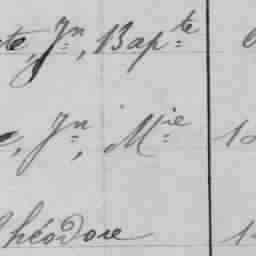 te, Jn, Bapte
e, Jn, Mie
Théodore